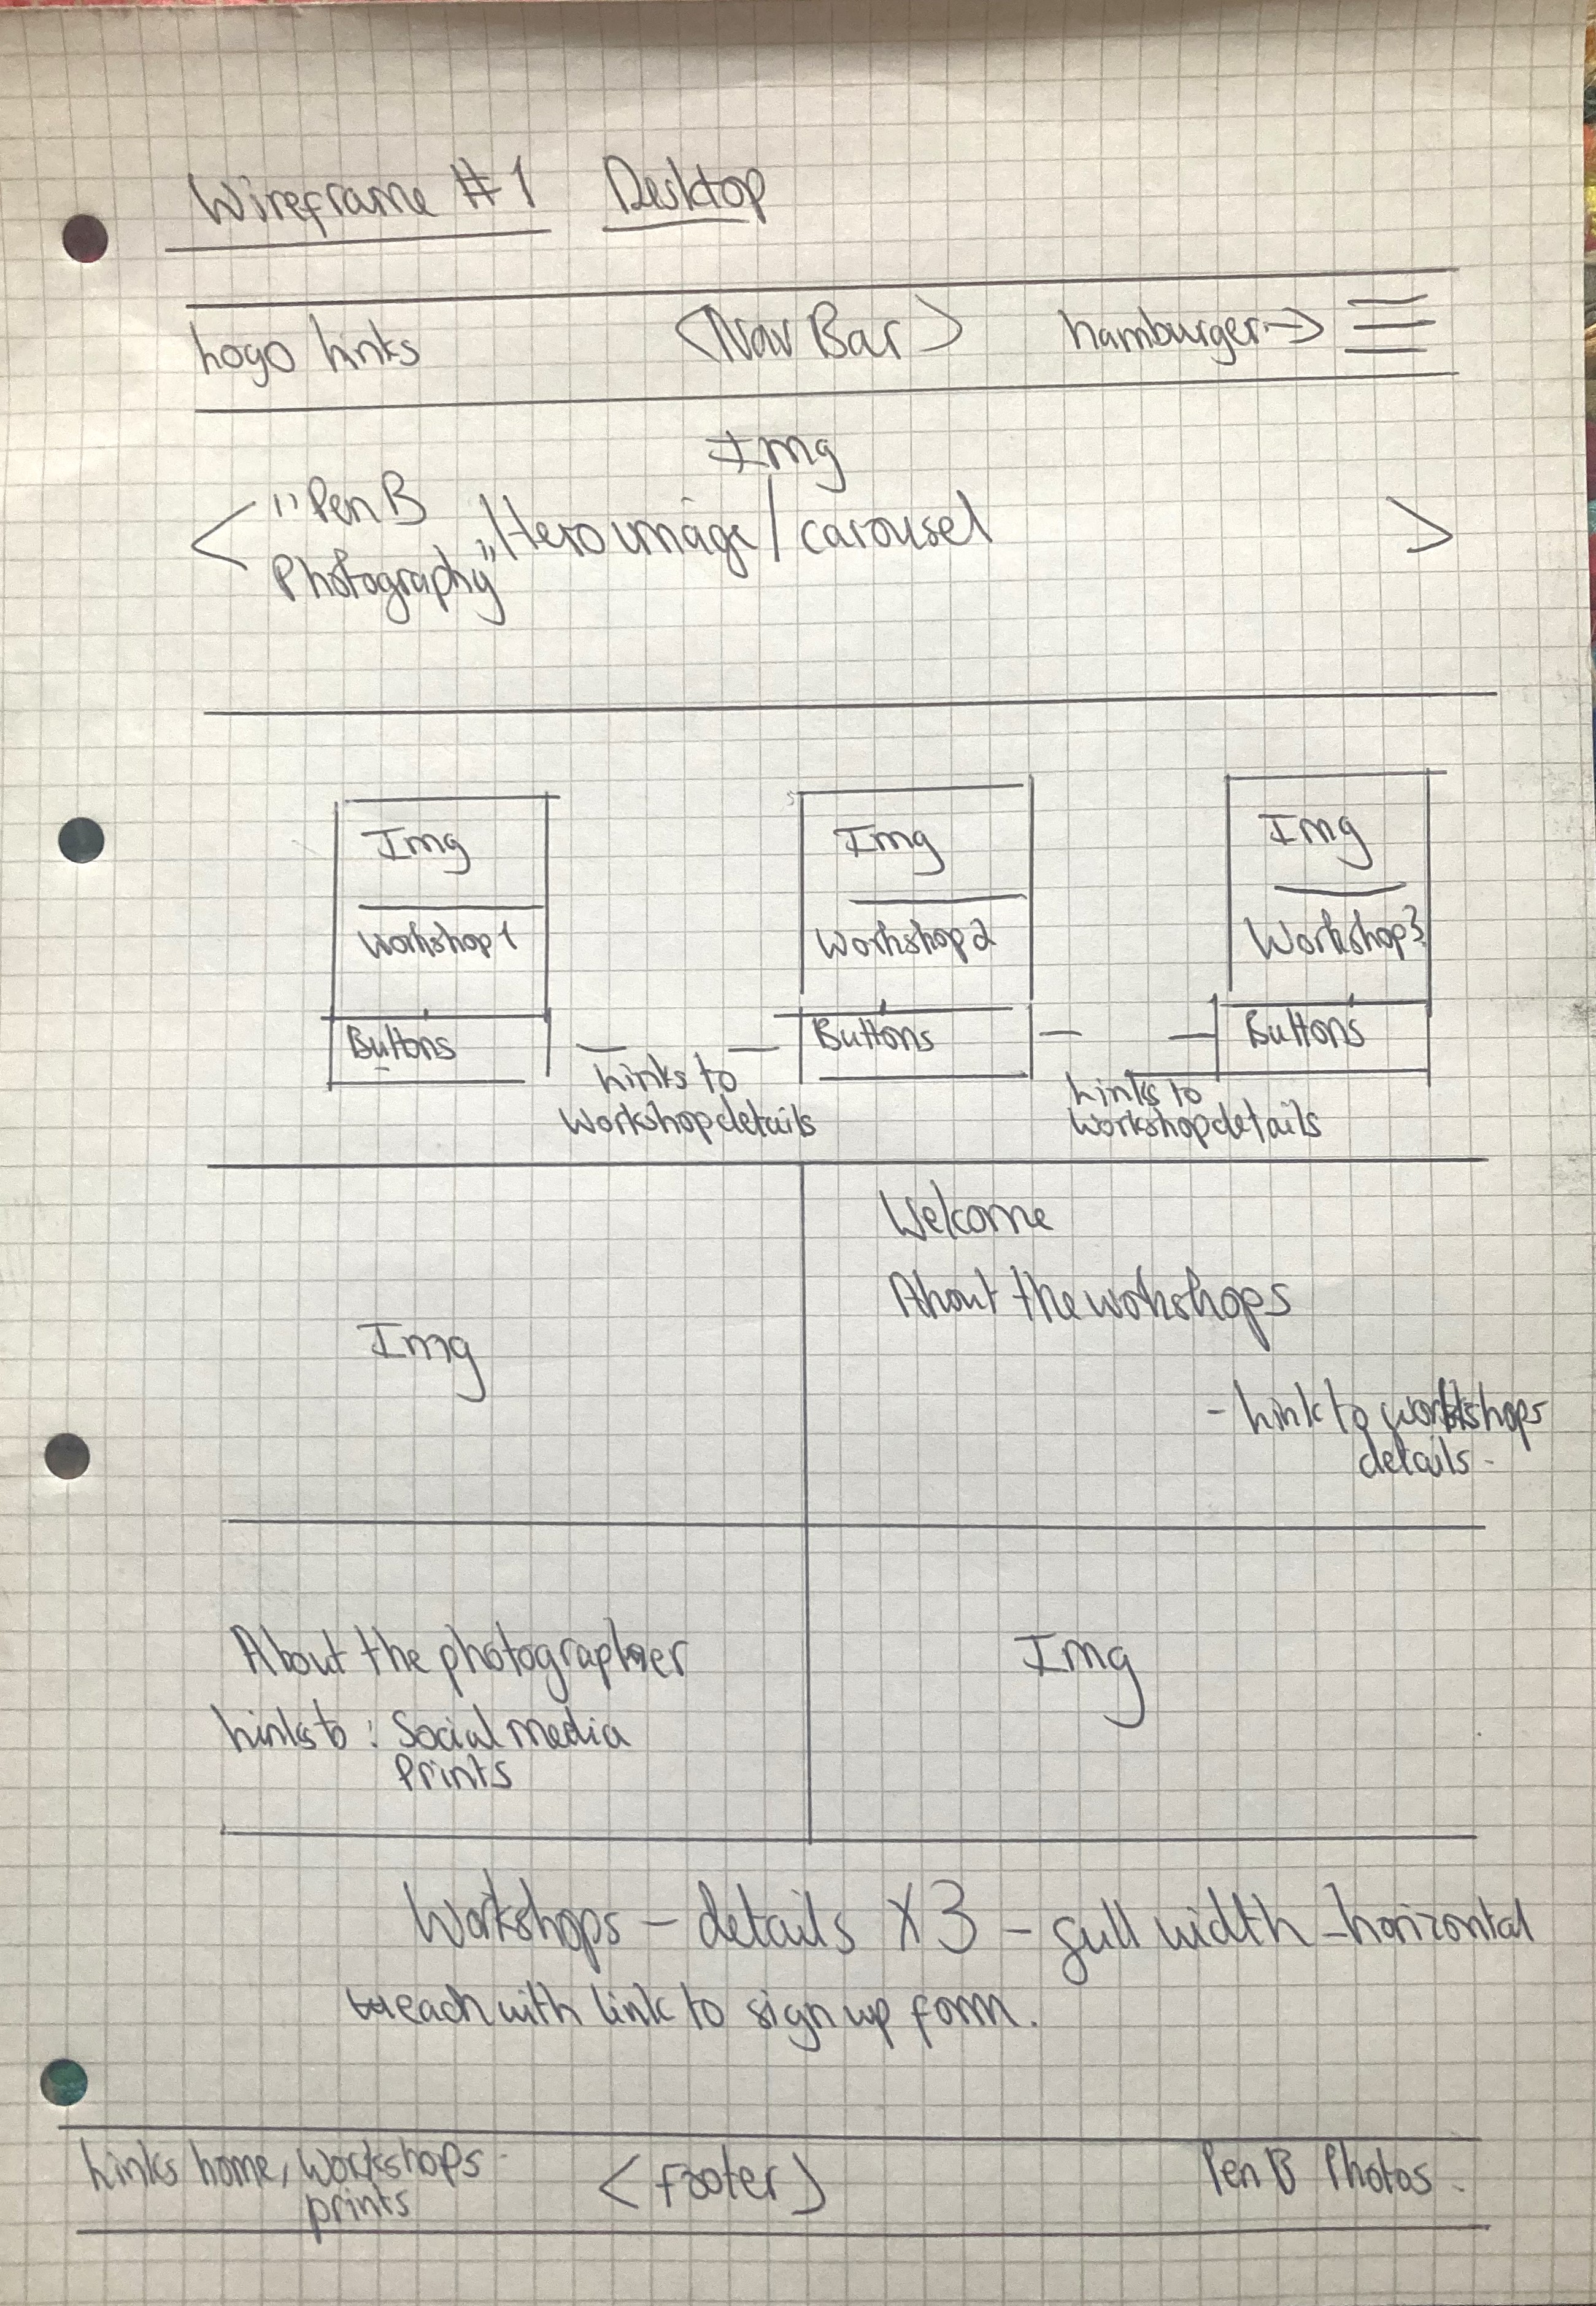 Wireframe #1 Desktop
Logo Links <Nav Bar> hamburger →
Img
"Pen B
Photography" Hero image / carousel
Img Img Img
Workshop 1 Workshop 2 Workshop 3
Buttons Buttons Buttons
Links to
Workshop details
Links to
Workshop details
Welcome
About the workshops
Img
- Link to workshops
details -
About the photographer
Img
Links to : Social media
Prints
Workshops - details x 3 - full width - horizontal
each with link to sign up form.
Links home, Workshops
prints
<footer>
Pen B Photos